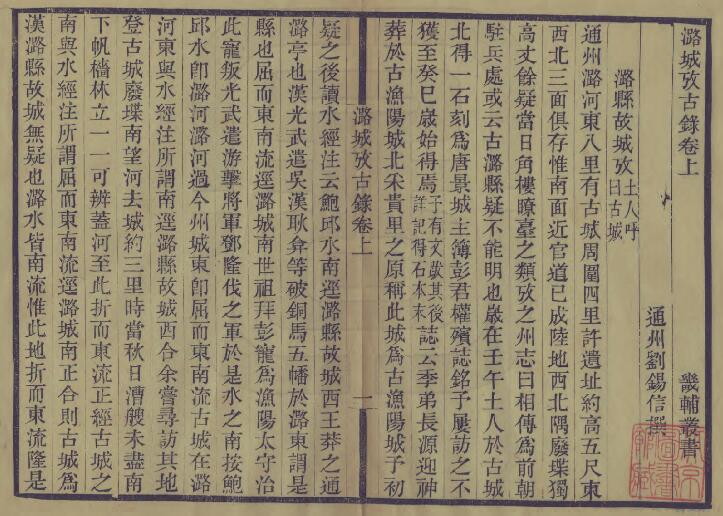 潞城攷古錄卷上
畿輔叢書
通州劉錫信撰
潞縣故城攷土人呼曰古城
通州潞河東八里有古城周圍四里許遺址約高五尺東
西北三面俱存惟南面近官道已成陸地西北隅廢堞獨
高丈餘疑當日角樓瞭臺之類攷之州志曰相傳爲前朝
駐兵處或云古潞縣疑不能明也歲在壬午土人於古城
北得一石刻爲唐景城主簿彭君權殯誌銘予屢訪之不
獲至癸巳歲始得焉予有文載其後詳記得石本末誌云季弟長源迎神
葬於古漁陽城北采貴里之原稱此城爲古漁陽城予初
潞城攷古錄卷上
一
疑之後讀水經注云鮑邱水南逕潞縣故城西王莽之通
潞亭也漢光武遣吳漢耿弇等破銅馬五幡於潞東謂是
縣也屈而東南流逕潞城南世祖拜彭寵爲漁陽太守治
此寵叛光武遣游擊將軍鄧隆伐之軍於是水之南按鮑
邱水卽潞河潞河過今州城東卽屈而東南流古城在潞
河東與水經注所謂南逕潞縣故城西合余嘗尋訪其地
登古城廢堞南望河去城約三里時當秋日漕艘未盡南
下帆檣林立一一可辨蓋河至此折而東流正經古城之
南與水經注所謂屈而東南流逕潞城南正合則古城爲
漢潞縣故城無疑也潞水皆南流惟此地折而東流隆是